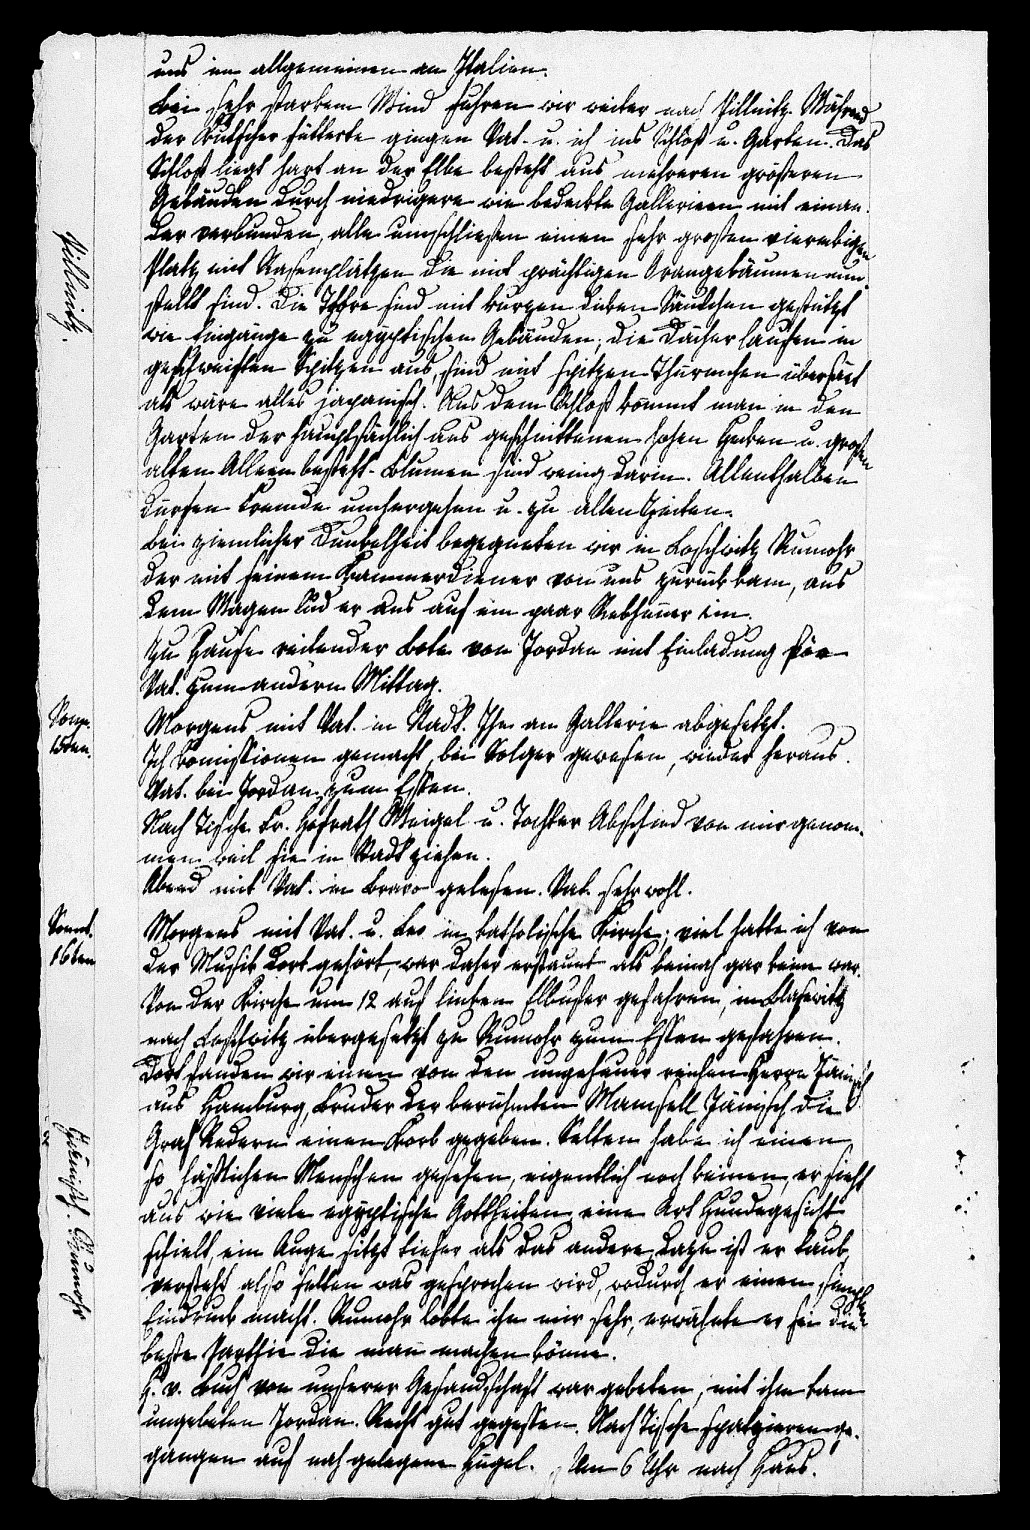 uns im allgemeinen an Italien.
Bei sehr starkem Wind fuhren wir weiter nach Pillnitz. Während
der Kutscher fütterte gingen Vat. u. ich ins Schloß u. Garten. Das
Schloß liegt hart an der Elbe besteht aus mehreren größeren
Gebäuden durch niedrigere wie bedeckte Gallerieen mit einan-
der verbunden, alle umschließen einen sehr großen viereckigen
Pillnitz.
Platz mit Rasenplätzen die mit prächtigen Orangebäumen um-
stellt sind. Die Thore sind mit kurzen dicken Säulchen gestützt
wie Eingänge zu egyptischen Gebäuden; die Dächer laufen in
geschweiften Spitzen aus, sind mit spitzen Thürmchen übersäet
als wäre alles japanisch. Aus dem Schloß kommt man in den
Garten der hauptsächlich aus geschnittenen hohen Hecken u. großen
alten Alleen besteht. Blumen sind wenig darin. Allenthalben
dürfen Fremde umhergehen u. zu allen Zeiten.
Bei ziemlicher Dunkelheit begegneten wir in Loschwitz Rumohr
der mit seinem Kammerdiener von uns zurück kam, aus
dem Wagen lud er uns auf ein paar Rebhüner ein.
Zu Hause reitender Bote von Jordan mit Einladung für
Vat. zum andern Mittag.
Sonn.
15ten.
Morgens mit Vat. in Stadt. Ihn an Gallerie abgesetzt.
Ich Comissionen gemacht, bei Solger gewesen, wieder heraus.
Vat. bei Jordan zum Essen.
Nach Tische Fr. Hofrath Weigel u. Tochter Abschied von mir genom-
men weil sie in Stadt ziehen.
Abend mit Vat. in Bravo gelesen. Vat. sehr wohl.
Sonnt.
16ten
Morgens mit Vat. u. Leo in katholische Kirche; viel hatte ich von
der Musik dort gehört, war daher erstaunt als beinah gar keine war.
Von der Kirche um 12 auf linken Elbufer gefahren, in Blasewitz
nach Loschwitz übergesetzt zu Rumohr zum Essen gefahren.
Dort fanden wir einen von den ungeheuer reichen Herrn Jänisch
aus Hamburg, Bruder der berühmten Mamsell Jänisch die
Graf Redern einen Korb gegeben. Selten habe ich einen
Jänisch. Rumohr
so häßlichen Menschen gesehen, eigentlich noch keinen, er sieht
aus wie viele egyptische Gottheiten eine Art Hundegesicht
schielt, ein Auge sitzt tiefer als das andere, dazu ist er taub,
versteht also selten was gesprochen wird, wodurch er einen simplen
Eindruck macht. Rumohr lobte ihn mir sehr, erwähnte er sei die
beste Parthie die man machen könne.
H. v. Buch von unserer Gesandschaft war gebeten, mit ihm kam
ungebeten Jordan. Recht gut gegessen. Nach Tische spatzieren ge-
gangen auf nah gelegene Hügel. Um 6 Uhr nach Haus.